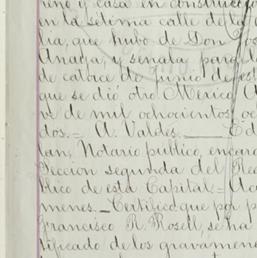 reno y casa en construcció
en la sétima calle de la
lia, que hubo de Don
Anaya, y señala para
de catorce de junio de est
que se dió otro Mexico A
ve de mil ochocientos oc
dos.— A. Valdés.—
lan, Notario público, encar
Seccion segunda del Re
blico de esta Capital = 
menes.— Certifico que por p
Francisco R. Rosell, se ha
tificado de los gravame